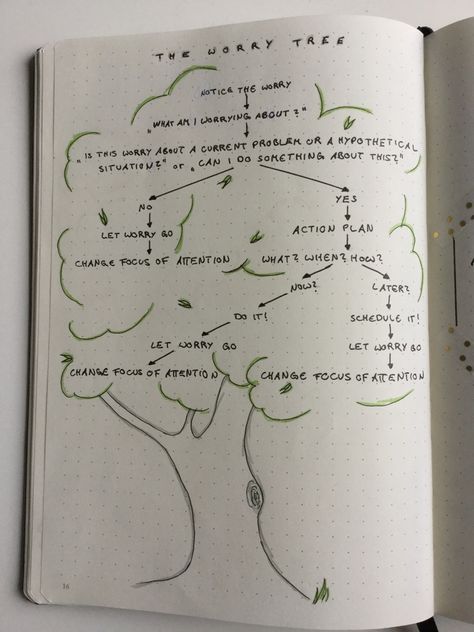 THE WORRY TREE
NOTICE THE WORRY
"WHAT AM I WORRYING ABOUT?"
"IS THIS WORRY ABOUT A CURRENT PROBLEM OR A HYPOTHETICAL
SITUATION?" or "CAN I DO SOMETHING ABOUT THIS?"
NO
YES
LET WORRY GO
ACTION PLAN
CHANGE FOCUS OF ATTENTION
WHAT? WHEN? HOW?
NOW?
LATER?
DO IT!
SCHEDULE IT!
LET WORRY GO
LET WORRY GO
CHANGE FOCUS OF ATTENTION
CHANGE FOCUS OF ATTENTION
16